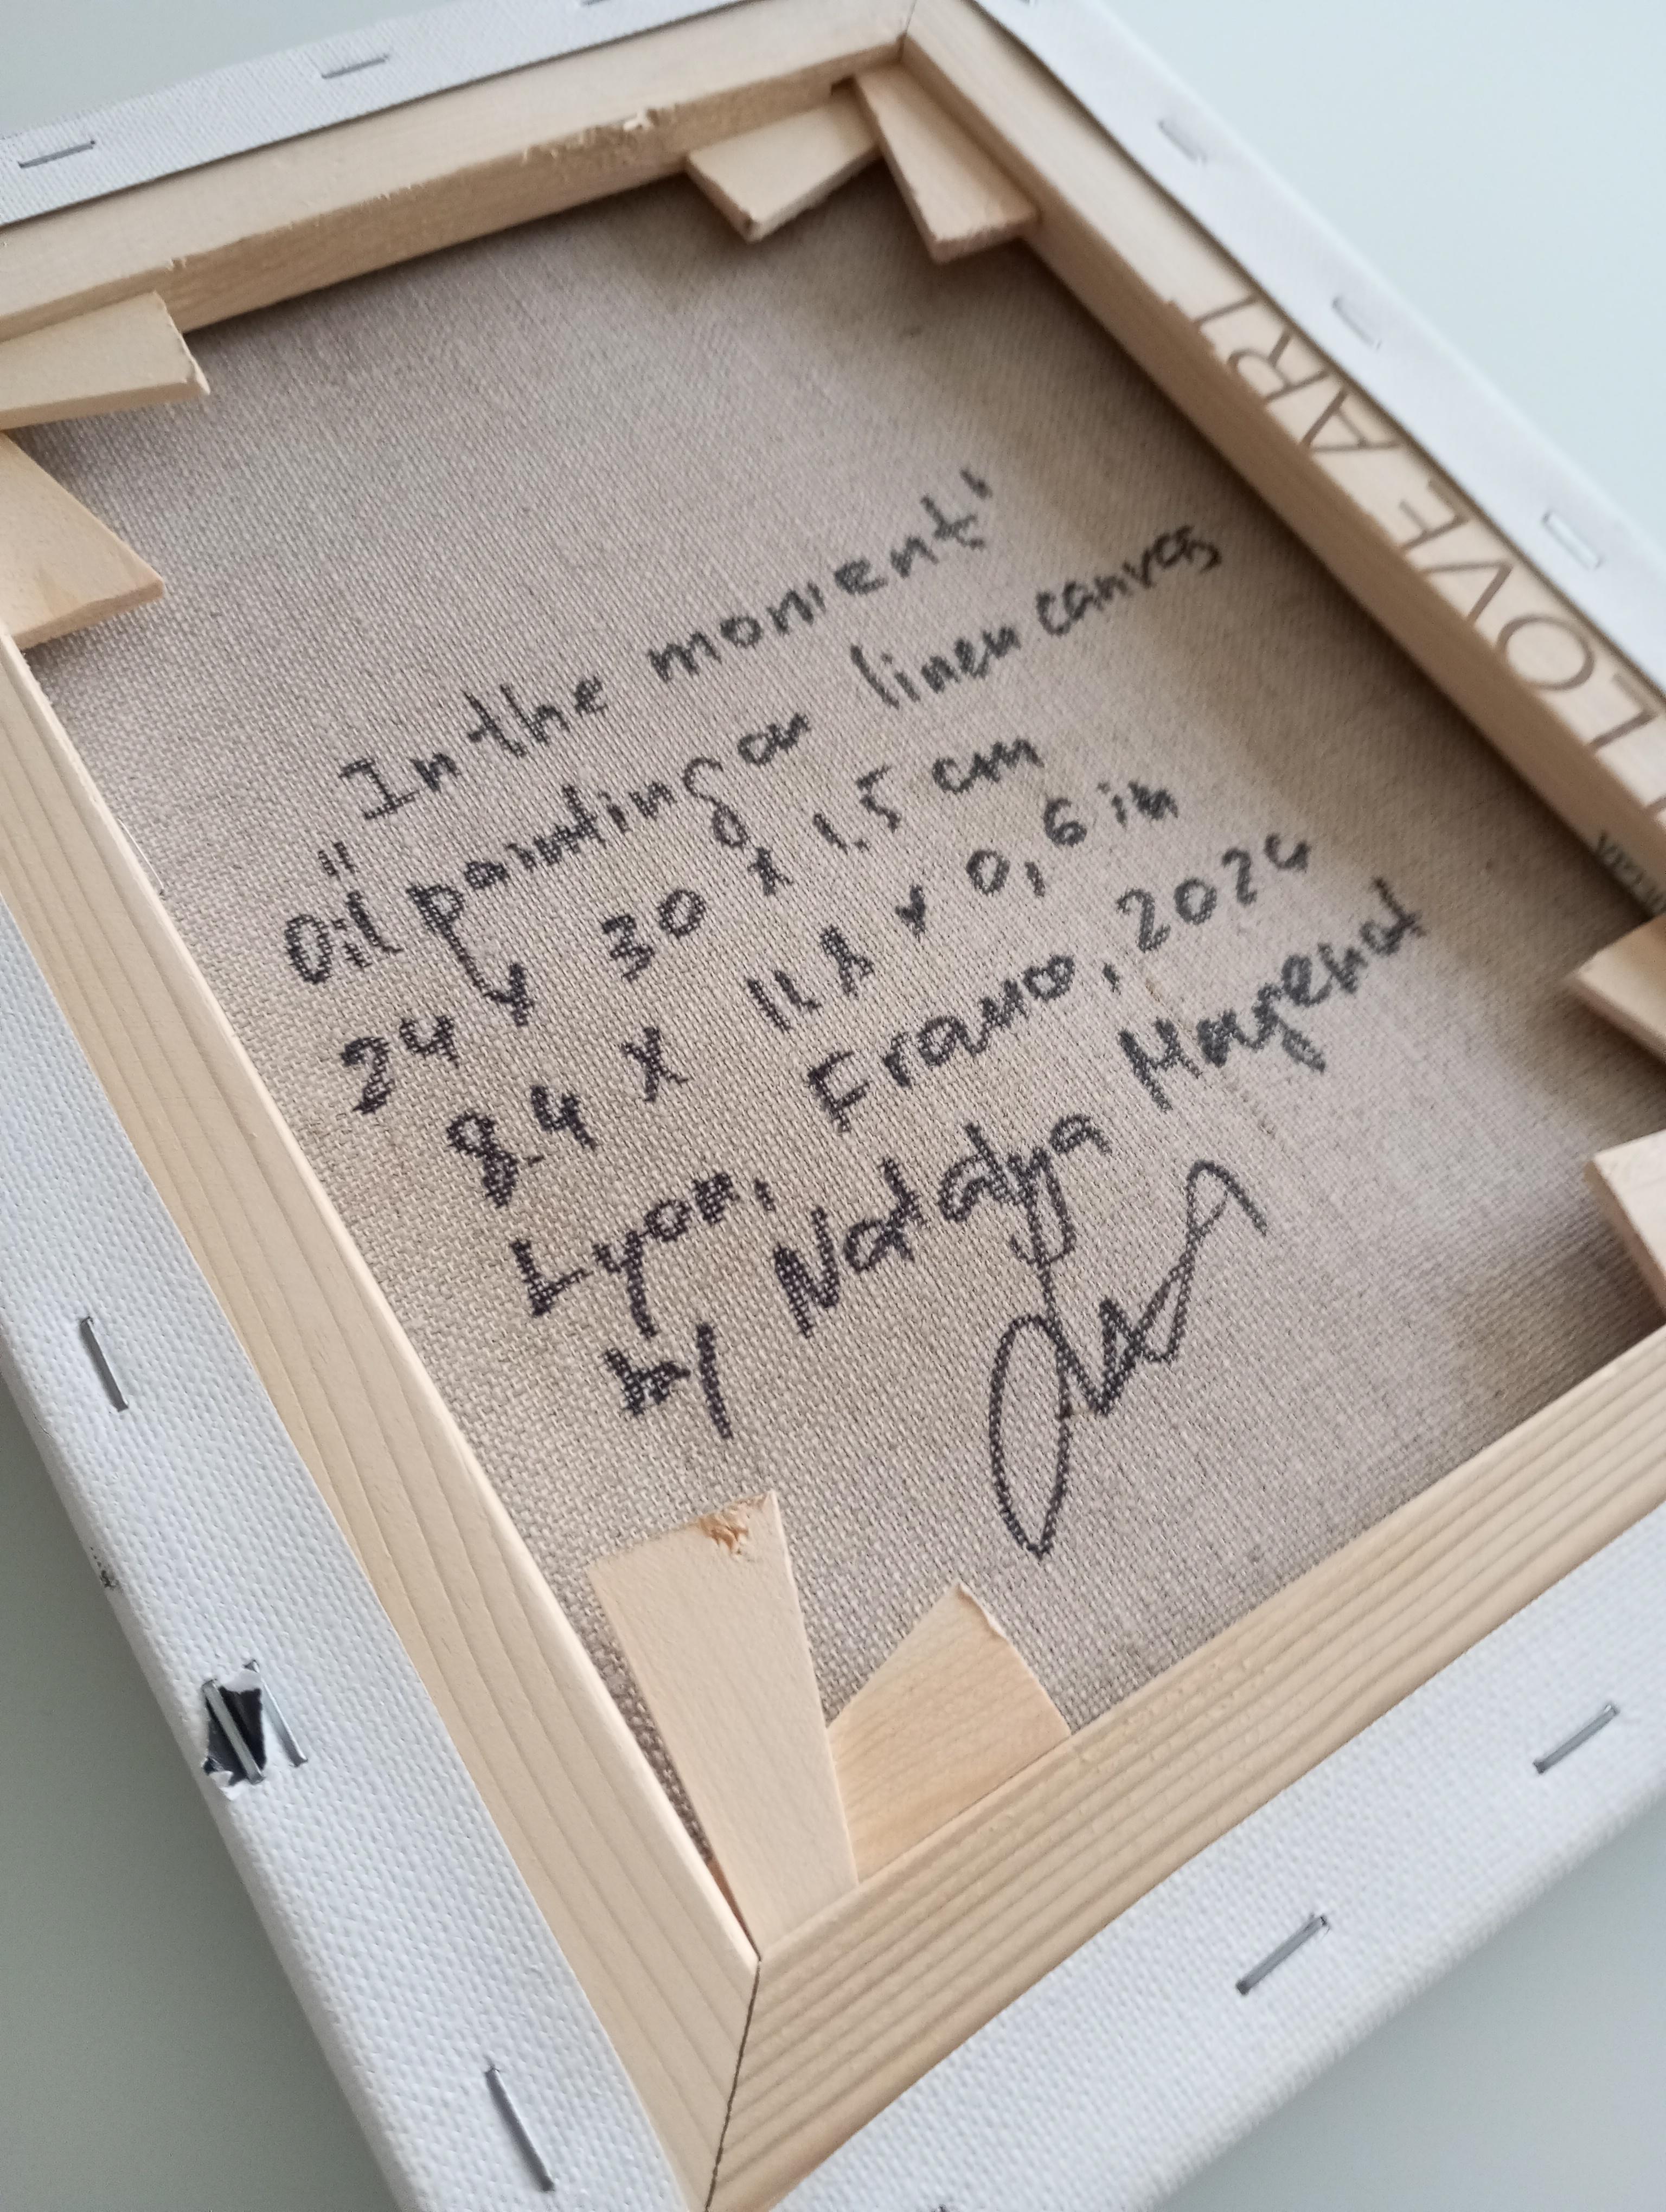 "In the moment"
Oil painting on linen canvas
24 x 30 x 1.5 cm
8.4 x 11.8 x 0,6 in
Lyon, France, 2024
by Natalya Mougenot
LOVE ART